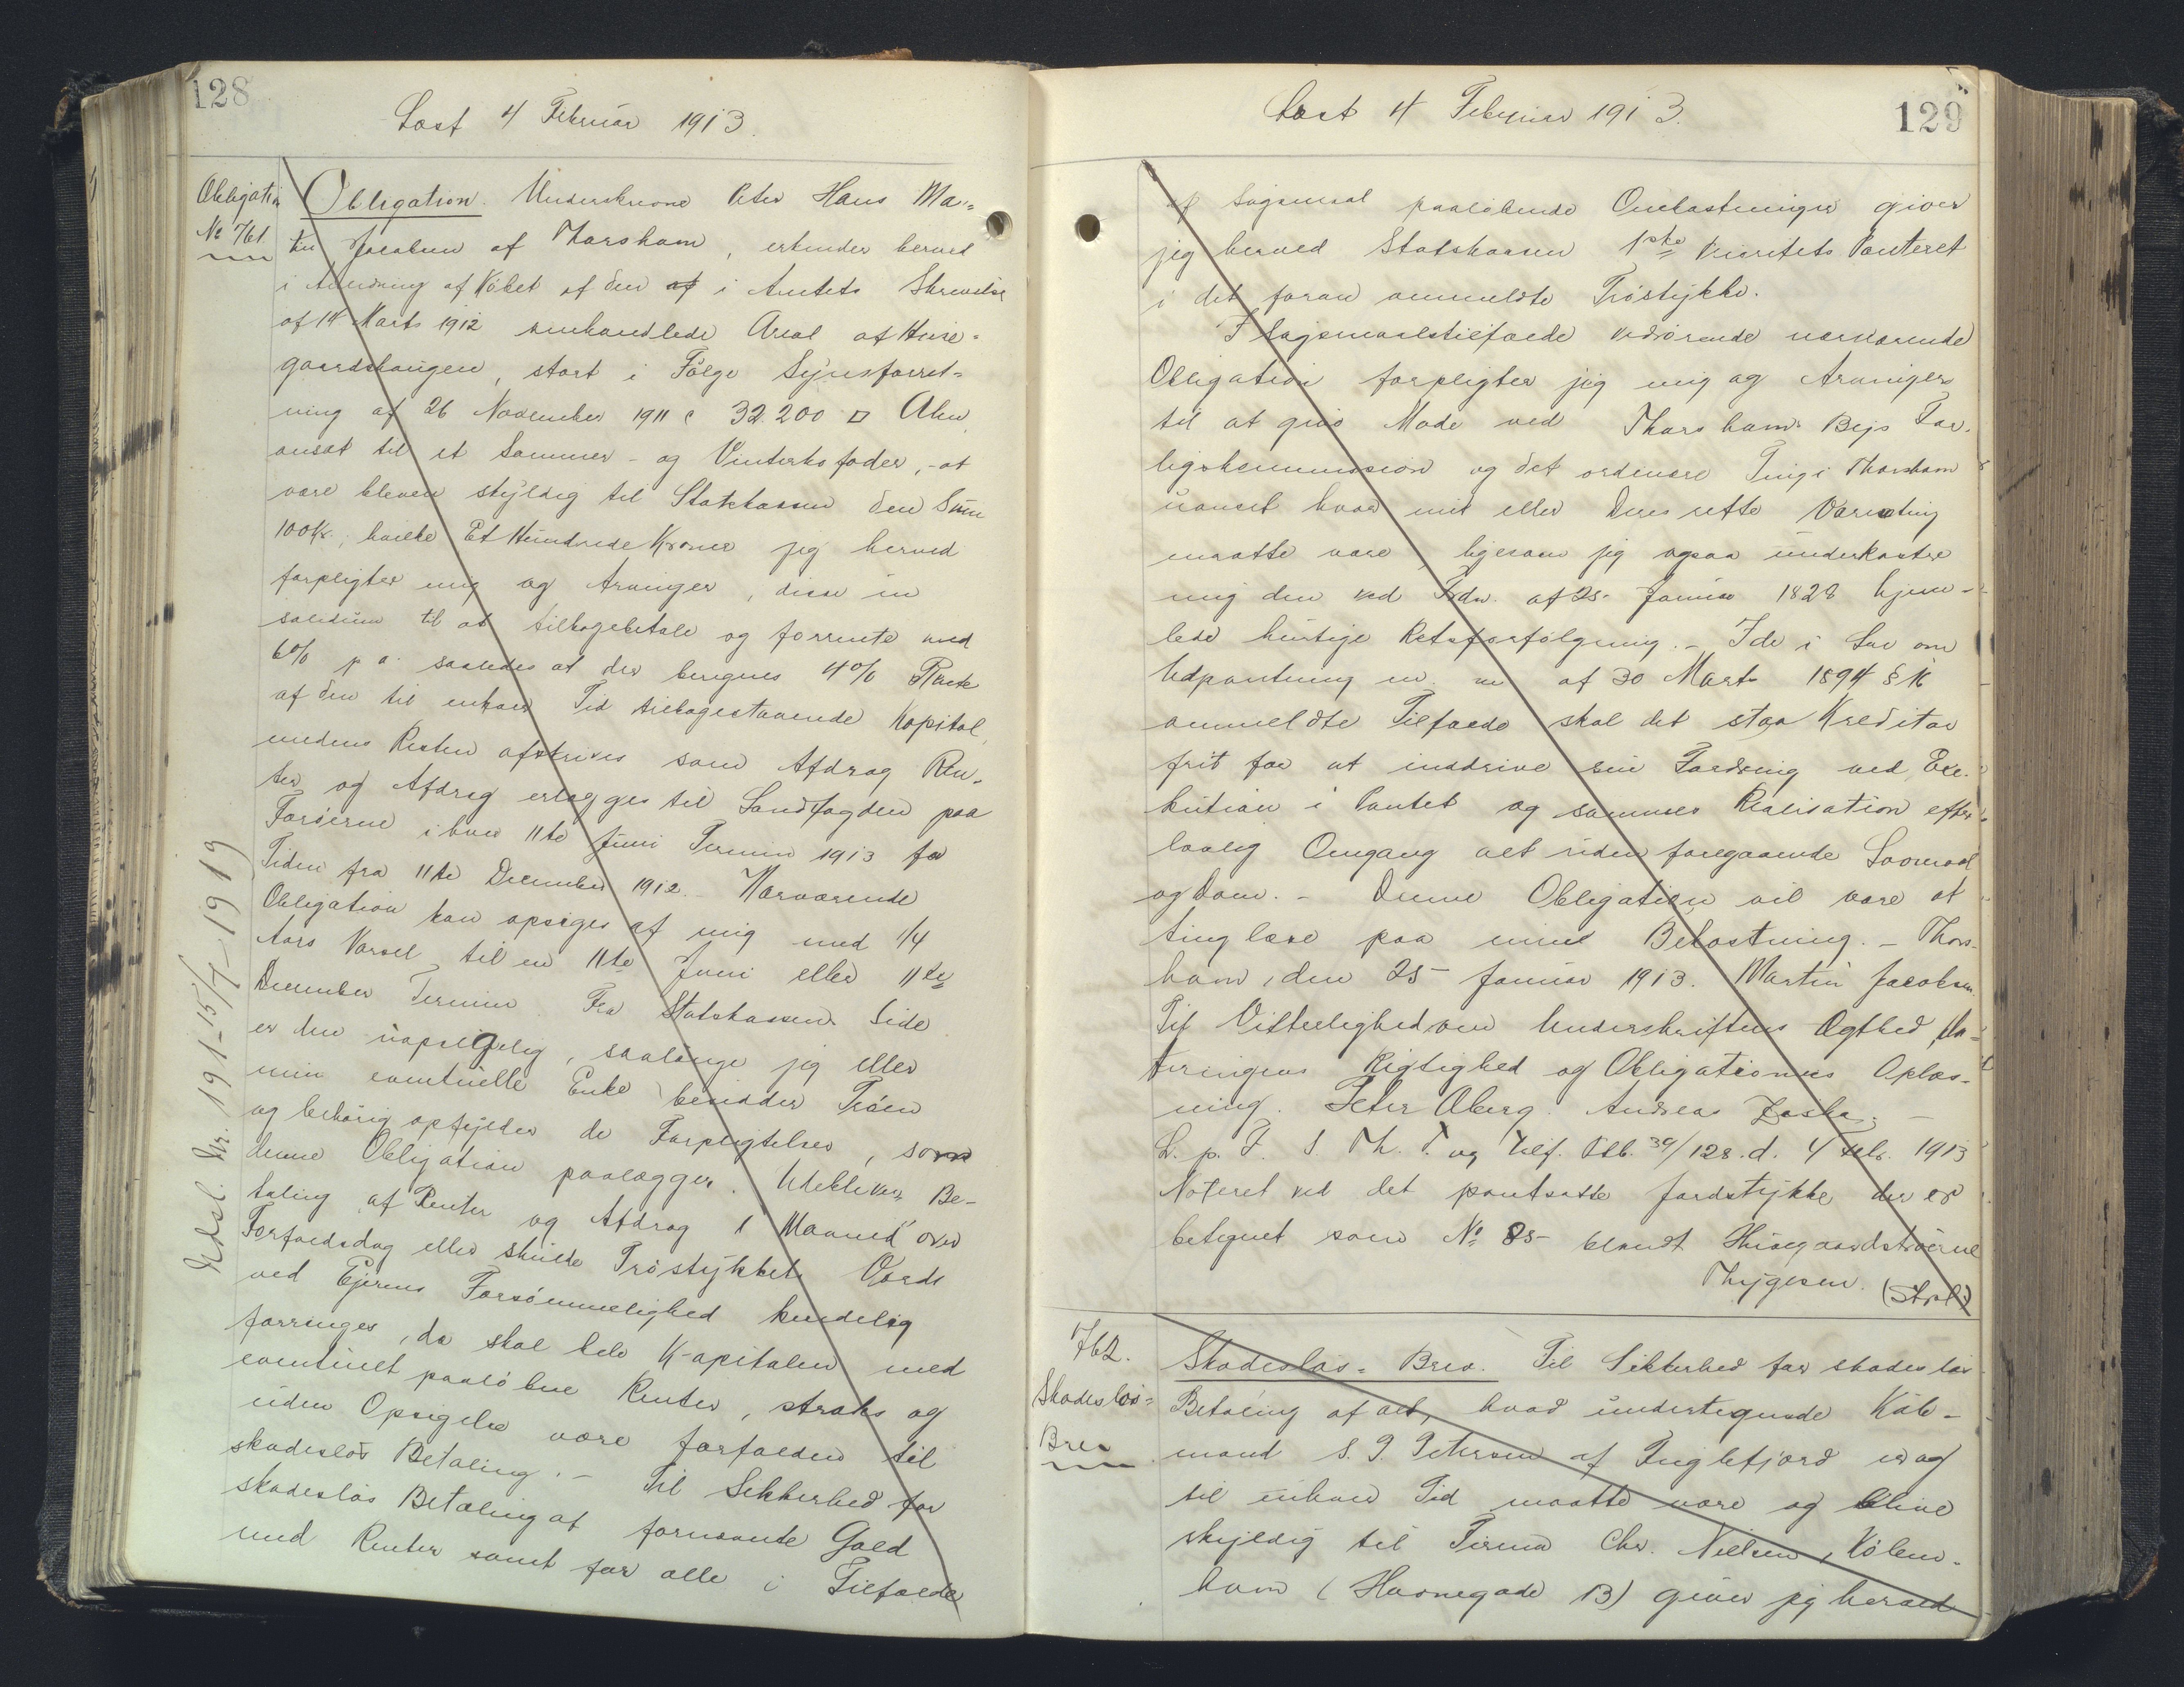 128
Læst 4 Februar 1913.
Obligation
No 761
Obligation. Underskrevne Peter Hans Mar=
tin Jacobsen af Thorshavn, erkender herved
i Anledning af Købet af den af i Amtets Skrivelse
af 14 Marts 1912 omhandlede Areal af Husa=
gaardshaugen, stort i Følge Synsforret=
ning af 26 November 1911 c 32.200 □ Alen,
ansat til et Sommer- og Vinterkofoder, - at
være bleven skyldig til Statskassen den Sum
100 Kr., hvilke Et Hundrede Kroner jeg herved
forpligter mig og Arvinger, disse in
solidum til at tilbagebetale og forrente med
6% p a. saaledes at der beregnes 4% Rente
af den til enhver Tid tilbagestaaende Kapital,
medens Resten afskrives som Afdrag. Ren-
ter og Afdrag erlægges til Landfogden paa
Færøerne i hver 11te Juni Termin 1913 for
Tiden fra 11te December 1912. Nærværende
Obligation kan opsiges af mig med 1/4
Aars Varsel til en 11te Juni eller 11te
December Termin. Fra Statskassens Side
er den uopsigelig, saalænge jeg eller
min eventuelle Enke besidder Trøen
og behørig opfylder de Forpligtelser, som
denne Obligation paalægger. Udebliver Be-
taling af Renter og Afdrag 1 Maaned over
Forfaldsdag eller skulde Trøstykkets Værdi
ved Ejerens Forsømmelighed kendelig
forringes, da skal hele Kapitalen med
eventuelt paaløbne Renter, straks og
uden Opsigelse være forfalden til
skadesløs Betaling. - Til Sikkerhed for
skadesløs Betaling af fornævnte Gæld
med Renter samt for alle i Tilfælde
Udsl. Nr. 191-15/7-1919
129
Læst 4 Februar 1913.
af Søgsmaal paaløbende Omkostninger giver
jeg herved Statskassen 1ste Prioritets Panteret
i det foran ommeldte Trøstykke.
I Søgsmaalstilfælde vedrørende nærværende
Obligation forpligter jeg mig og Arvinger
til at give Møde ved Thorshavns Byes For-
ligskommission og det ordinære Ting i Thorshavn
uanset hvor mit eller Deres rette Værneting
maatte være, ligesom jeg ogsaa underkaster
mig den ved Frdn. af 25 Januar 1828 hjem-
lede hurtige Retsforfølgning. - I de i Lov om
Udpantning m. m af 30 Marts 1894 § 16
ommeldte Tilfælde skal det staa Kreditor
frit for at inddrive sin Fordring ved Exe-
kution i Pantet og sammes Realisation efter
lovlig Omgang alt uden foregaaende Lovmaal
og Dom. - Denne Obligation vil være at
tinglæse paa min Bekostning. - Thors-
havn, den 25 Januar 1913. Martin Jacobsen
Til Vitterlighed om Underskriftens Ægthed, Da-
teringens Rigtighed og Obligationens Oplæs-
ning. Peter Øberg. Andreas Zaska. -
L. p. F. S. Th. T. og Tilf. Ptb. 30/128. d. 4 Feb. 1913
Noteret ved det pantsatte Jordstykke der er
betegnet som No 85 blandt Husegaardstrøerne
Thygesen. (Stpl.)
762.
Skadesløs=
Brev
Skadesløs=Brev. Til Sikkerhed for skadesløs
Betaling af alt, hvad undertegnede Køb-
mand S. P. Petersen af Fuglefjord er og
til enhver Tid maatte være og blive
skyldig til Firma Chr. Nielsen, Køben-
havn (Havnegade 13) giver jeg herved